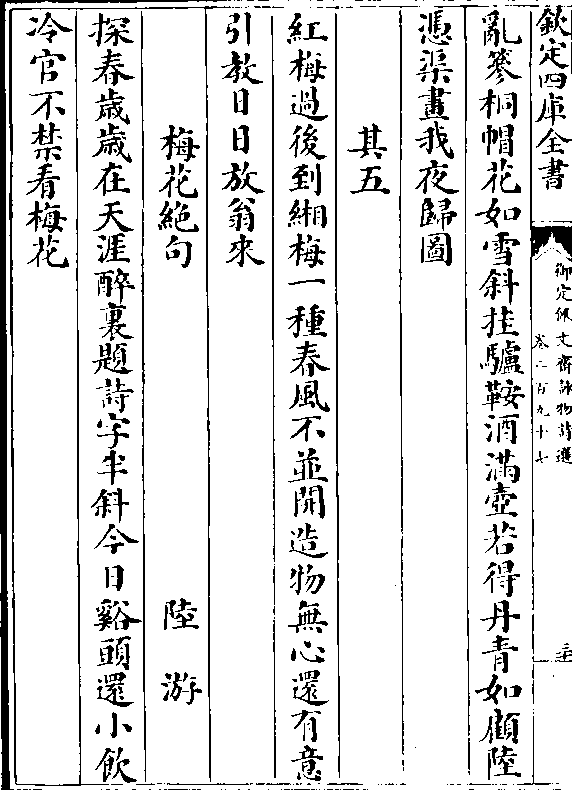 欽定四庫全書
御定佩文齋詠物詩選
卷二百九十七
亂篸桐帽花如雪斜挂驢鞍酒滿壺若得丹青如顧陸
憑渠畫我夜歸圖
其五
紅梅過後到緗梅一種春風不並開造物無心還有意
引教日日放翁來
梅花絶句 陸游
探春歳歳在天涯醉裏題詩字半斜今日谿頭還小飲
冷官不禁看梅花